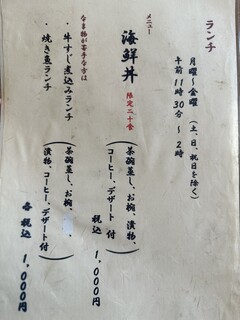 ランチ
月曜~金曜（土、日、祝日を除く）
午前11時30分~2時
メニュー
海鮮丼 限定二十食
（茶碗蒸し、お椀、漬物、
コーヒー、デザート付）
税込 1,000円
なま物が苦手な方は
・牛すじ煮込みランチ
・焼き魚ランチ
（茶碗蒸し、お椀、
漬物、コーヒー、デザート付）
各税込 1,000円